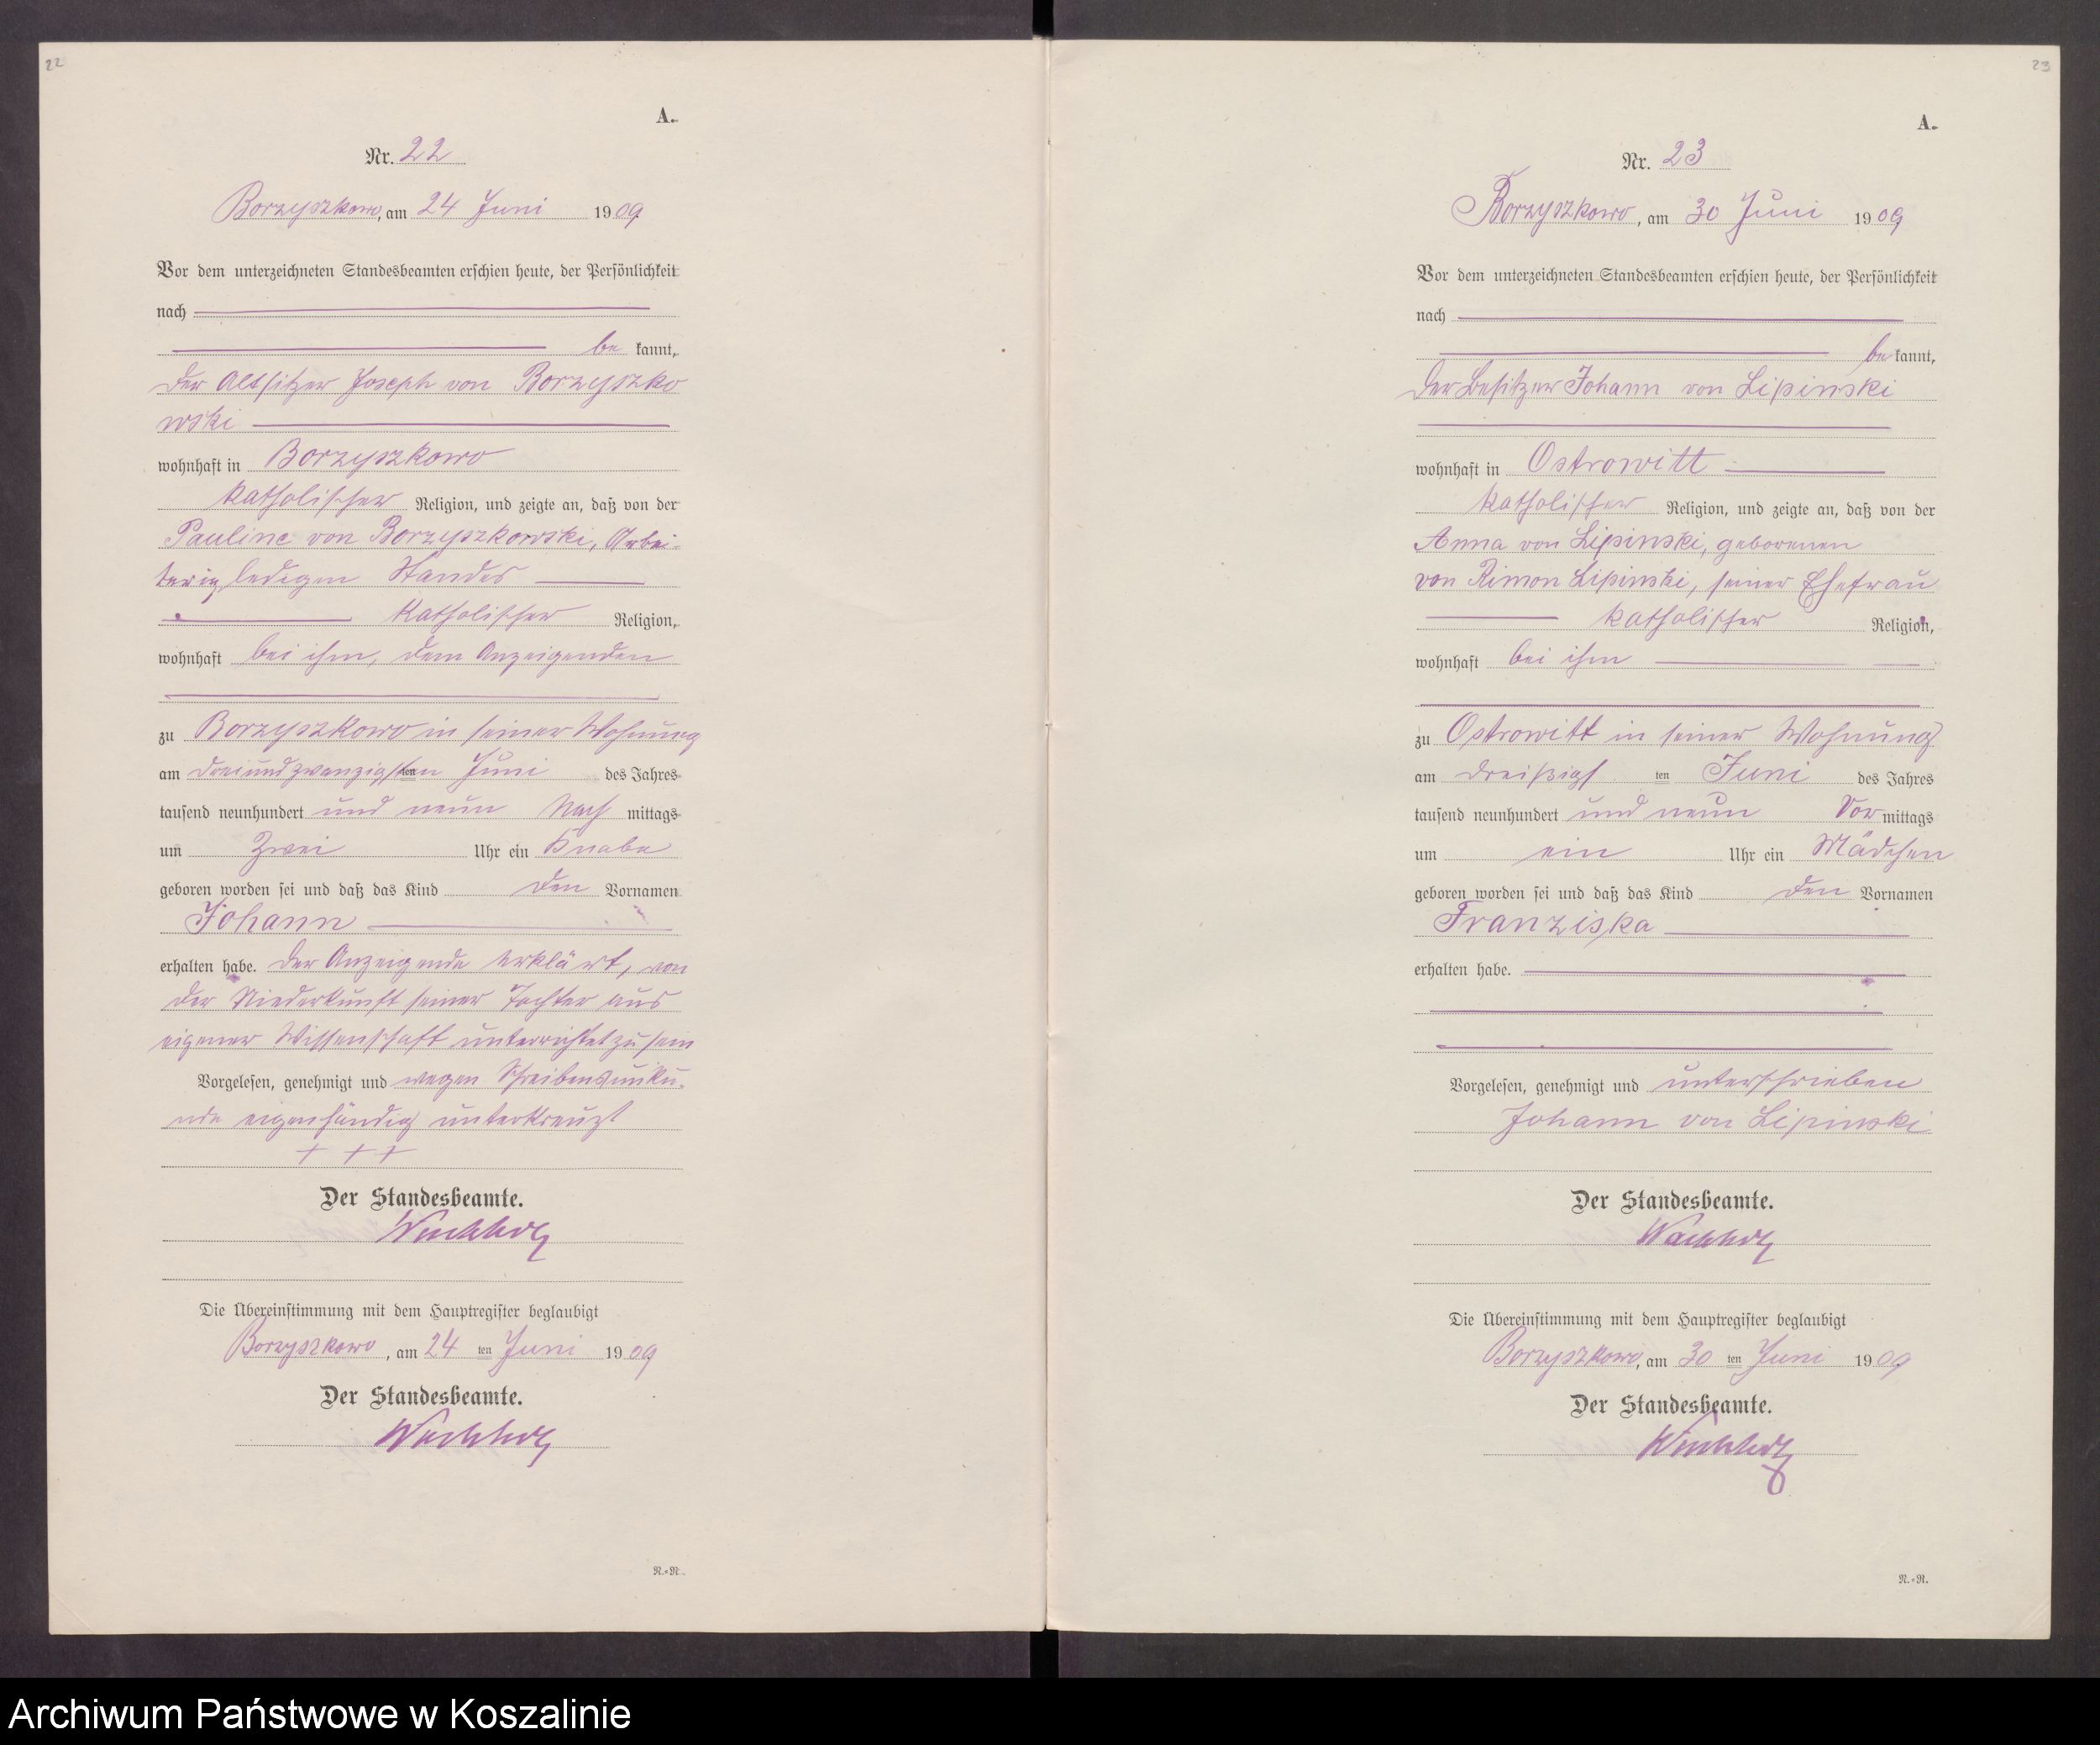 22
A.
Nr. 22
Borzyszkowo, am 24 Juni 1909
Vor dem unterzeichneten Standesbeamten erschien heute, der Persönlichkeit
nach
be kannt,
der Altsitzer Joseph von Borzyszko
wski
wohnhaft in Borzyszkowo
katholischer Religion, und zeigte an, daß von der
Pauline von Borzyszkowski, Arbei-
terin, ledigen Standes
katholischer Religion,
wohnhaft bei ihm, dem Anzeigenden
zu Borzyszkowo in seiner Wohnung
am dreiundzwanzigsten ten Juni des Jahres
tausend neunhundert und neun Nach mittags
um Zwei Uhr ein Knabe
geboren worden sei und daß das Kind den Vornamen
Johann
erhalten habe. Der Anzeigende erklärt, von
der Niederkunft seiner Tochter aus
eigener Wissenschaft unterrichtet zu sein
Vorgelesen, genehmigt und wegen Schreibensunku-
nde eigenhändig unterkreuzt
+ + +
Der Standesbeamte.
Wachholz
Die Übereinstimmung mit dem Hauptregister beglaubigt
Borzyszkowo, am 24 ten Juni 1909
Der Standesbeamte.
Wachholz
N.=N.
23
A.
Nr. 23
Borzyszkowo, am 30 Juni 1909
Vor dem unterzeichneten Standesbeamten erschien heute, der Persönlichkeit
nach
be kannt,
der Besitzer Johann von Lipinski
wohnhaft in Ostrowitt
katholischer Religion, und zeigte an, daß von der
Anna von Lipinski, geborenen
von Rimon Lipinski, seiner Ehefrau
katholischer Religion,
wohnhaft bei ihm
zu Ostrowitt in seiner Wohnung
am dreißigs ten Juni des Jahres
tausend neunhundert und neun Vor mittags
um ein Uhr ein Mädchen
geboren worden sei und daß das Kind den Vornamen
Franziska
erhalten habe.
Vorgelesen, genehmigt und unterschrieben
Johann von Lipinski
Der Standesbeamte.
Wachholz
Die Übereinstimmung mit dem Hauptregister beglaubigt
Borzyszkowo, am 30 ten Juni 1909
Der Standesbeamte.
Wachholz
N.=N.
Archiwum Państwowe w Koszalinie